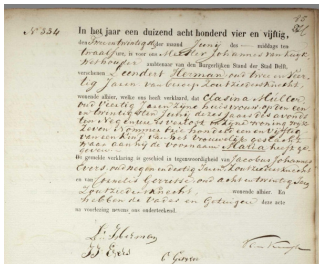 No 334
In het jaar een duizend acht honderd vier en vijftig,
den Twee en twintigsten der maand Junij des middags ten
twaalf ure, is voor ons Meester Johannes van Kuyk
Wethouder ambtenaar van den Burgerlijken Stand der Stad Delft,
verschenen Leendert Herman oud twee en veer-
tig Jaren van beroep Zoutziedersknecht
wonende alhier, welke ons heeft verklaard, dat Clasina Mullon
oud veertig Jaren zijne huisvrouw op den een
en twintigsten Junij dezes jaars des avonds
ten negen ure is verlost in zijne woning wijk
Zeven nommer drie honderd een en vijftig
van een kind van het vrouwelijk geslacht
waar aan hij de voornaam Maria heeft ge-
geven
De gemelde verklaring is geschied in tegenwoordigheid van Jacobus Johannes
Evers oud negen en dertig Jaren Zoutziedersknecht
en van Cornelis Gerresse oud acht en twintig Jaren
Zoutziedersknecht wonende alhier. En
hebben de Vader en Getuigen deze acte
na voorlezing nevens ons onderteekend.
L. Herman
JJ Evers
C Gerresse